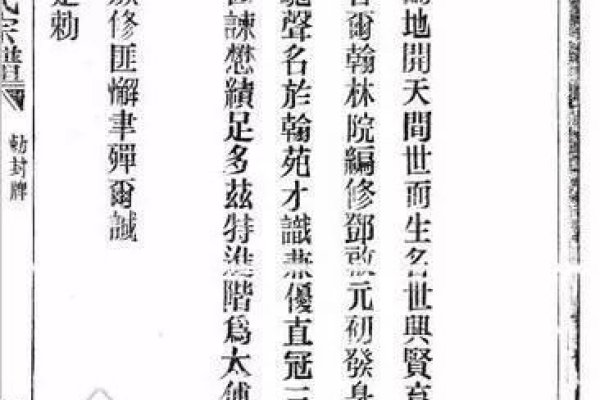 地開天間世而生名世興賢育
爾翰林院編修鄧啟元初發身
聲名於翰苑才識兼優直冠三
諫懋績足多茲特進階爲太傅
修匪懈聿殫爾誠
是勅
氏宗譜
勅封牌